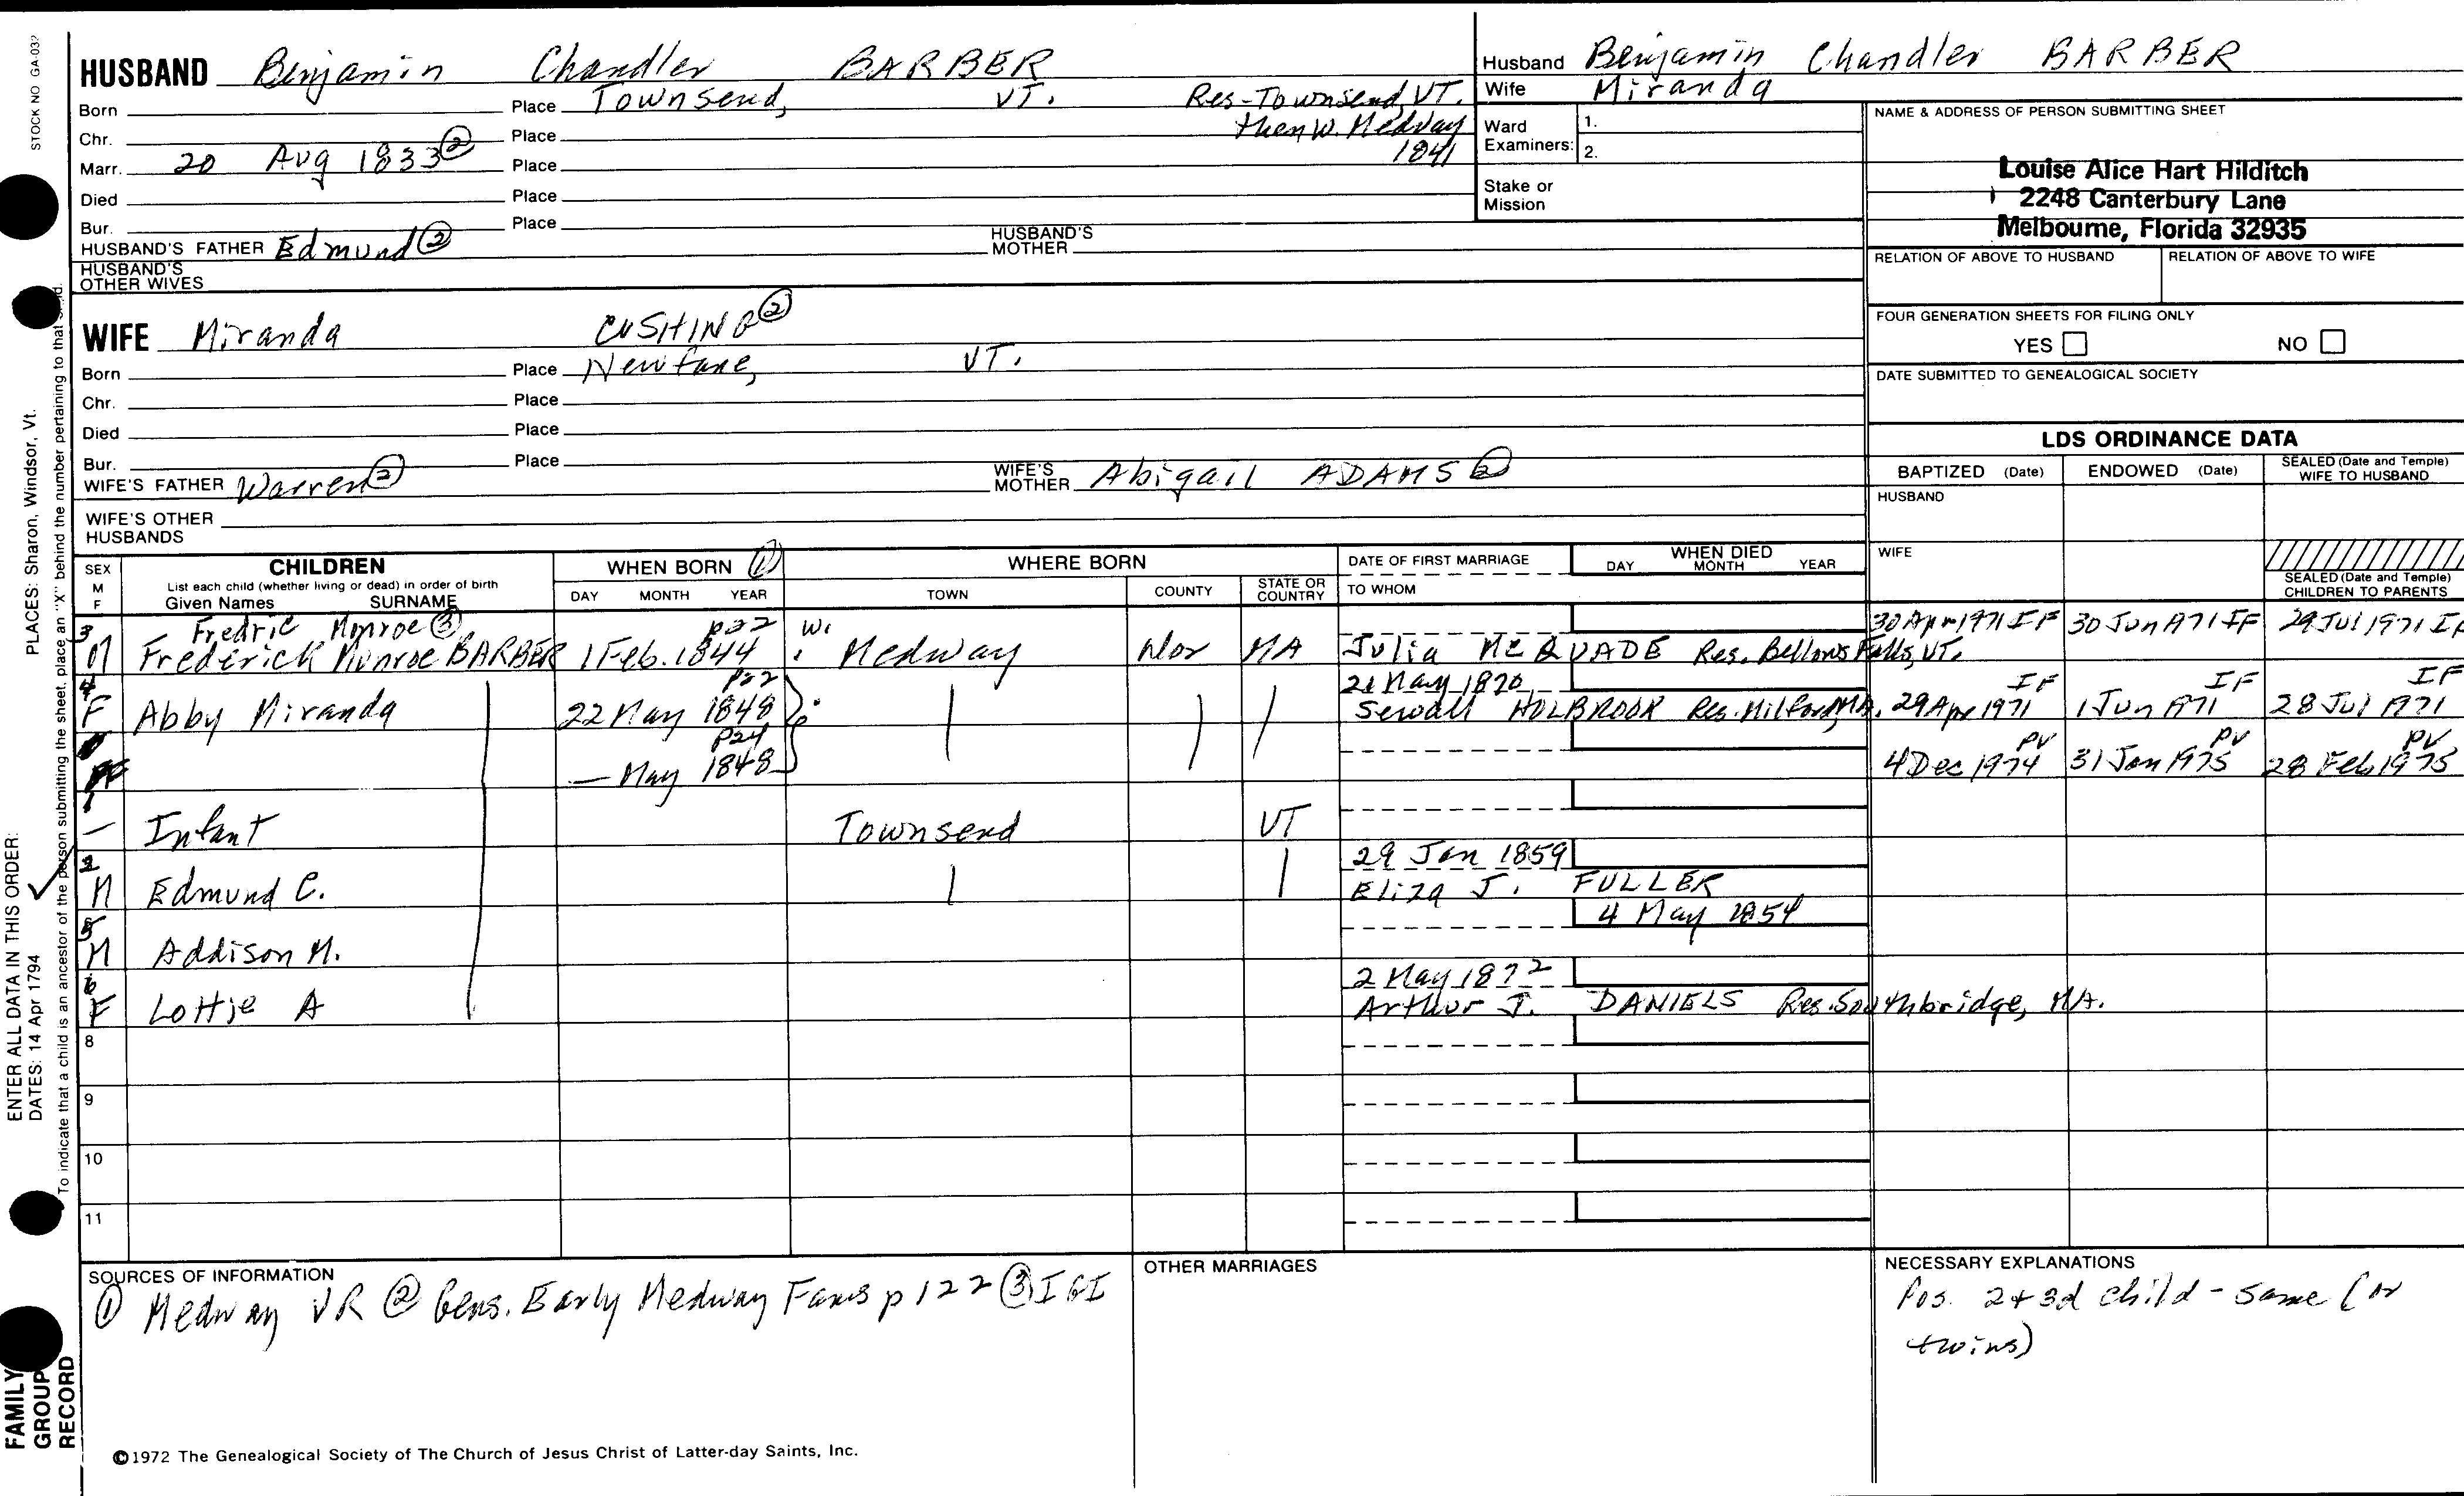 STOCK NO GA-032
HUSBAND Benjamin Chandler BARBER
Born Place Townsend, VT. Res-Townsend, VT.
Chr. Place then W. Medway
Marr. 20 Aug 1833 ② Place 1841
Died Place
Bur. Place
HUSBAND'S FATHER Edmund ② HUSBAND'S MOTHER
HUSBAND'S OTHER WIVES
WIFE Miranda CUSHING ②
Born Place Newfane, VT.
Chr. Place
Died Place
Bur. Place
WIFE'S FATHER Warren ② WIFE'S MOTHER Abigail ADAMS ②
WIFE'S OTHER HUSBANDS
Husband Benjamin Chandler BARBER
Wife Miranda
Ward Examiners: 1.
2.
Stake or Mission
NAME & ADDRESS OF PERSON SUBMITTING SHEET
Louise Alice Hart Hilditch
2248 Canterbury Lane
Melbourne, Florida 32935
RELATION OF ABOVE TO HUSBAND RELATION OF ABOVE TO WIFE
FOUR GENERATION SHEETS FOR FILING ONLY
YES NO
DATE SUBMITTED TO GENEALOGICAL SOCIETY
LDS ORDINANCE DATA
BAPTIZED (Date) ENDOWED (Date) SEALED (Date and Temple) WIFE TO HUSBAND
HUSBAND
WIFE
SEALED (Date and Temple) CHILDREN TO PARENTS
SEX M F CHILDREN WHEN BORN ① WHERE BORN DATE OF FIRST MARRIAGE WHEN DIED
List each child (whether living or dead) in order of birth
Given Names SURNAME DAY MONTH YEAR TOWN COUNTY STATE OR COUNTRY TO WHOM DAY MONTH YEAR
3 Fredric Monroe ③ p22 W. 30 Apr 1971 IF 30 Jun 1971 IF 29 Jul 1971 IF
M Frederick Monroe BARBER 1 Feb. 1844 Medway Nor MA Julia McQUADE Res. Bellows Falls, VT.
4 p22 21 May 1870 IF IF IF
F Abby Miranda 22 May 1848 Sewall HOLBROOK Res. Milford, MA. 29 Apr 1971 1 Jun 1971 28 Jul 1971
p24 PV PV PV
— May 1848 4 Dec 1974 31 Jan 1975 28 Feb 1975
1
— Infant Townsend VT
2 29 Jan 1859
M Edmund C. Eliza J. FULLER
5 4 May 1854
M Addison M.
6 2 May 1872
F Lottie A Arthur J. DANIELS Res. Southbridge, MA.
8
9
10
11
SOURCES OF INFORMATION
① Medway VR ② Gens. Early Medway Fams p 122 ③ IGI
OTHER MARRIAGES
NECESSARY EXPLANATIONS
Pos. 2 + 3d child - same (or
twins)
©1972 The Genealogical Society of The Church of Jesus Christ of Latter-day Saints, Inc.
FAMILY GROUP RECORD
ENTER ALL DATA IN THIS ORDER:
DATES: 14 Apr 1794
PLACES: Sharon, Windsor, Vt.
To indicate that a child is an ancestor of the person submitting the sheet, place an "X" behind the number pertaining to that child.